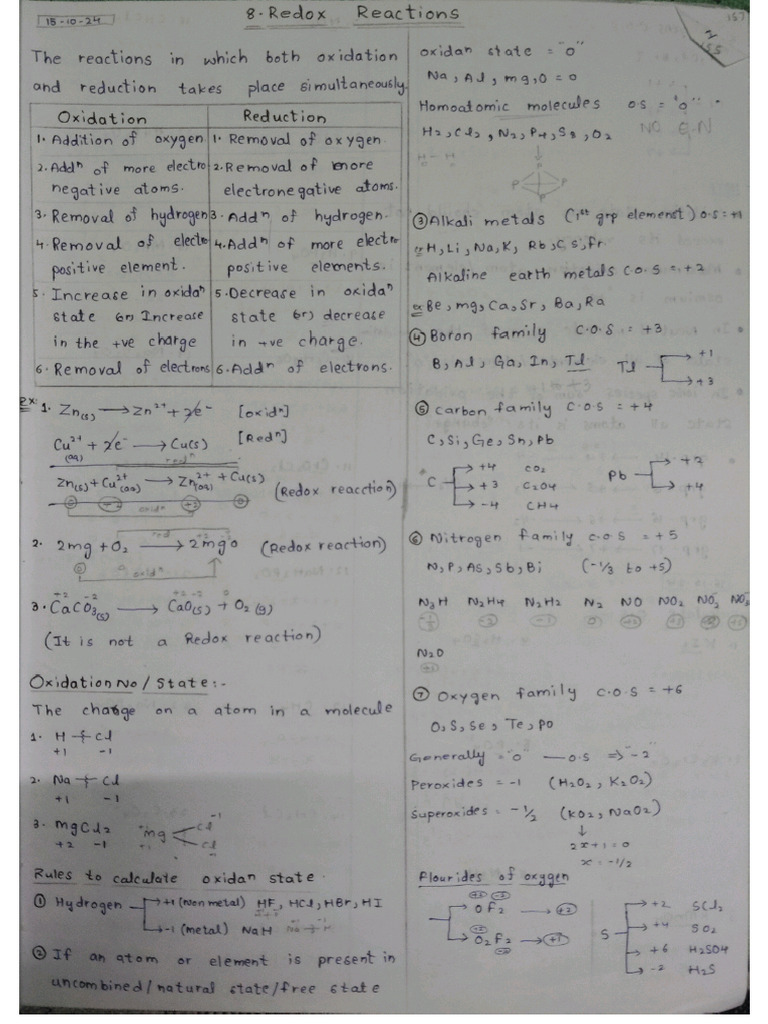 15-10-24
8-Redox Reactions
157
2
155
The reactions in which both oxidation
and reduction takes place simultaneously.
Oxidation Reduction
1. Addition of oxygen 1. Removal of oxygen.
2. Addⁿ of more electro 2. Removal of more
negative atoms. electronegative atoms.
3. Removal of hydrogen 3. Addⁿ of hydrogen.
4. Removal of electro 4. Addⁿ of more electro
positive element. positive elements.
5. Increase in oxidaⁿ 5. Decrease in oxidaⁿ
state (or) Increase state (or) decrease
in the +ve charge in +ve charge.
6. Removal of electrons 6. Addⁿ of electrons.
Ex: 1. Zn(s) → Zn²⁺ + 2e⁻ [oxidⁿ]
Cu²⁺(aq) + 2e⁻ → Cu(s) [Redⁿ]
redⁿ
Zn(s) + Cu²⁺(aq) → Zn²⁺(aq) + Cu(s) (Redox reacction)
0 +2 +2 0
oxidⁿ
2. 2mg + O₂ → 2mgo (Redox reaction)
red
0 oxidⁿ
3. CaCO₃(s) → CaO(s) + O₂(g)
(It is not a Redox reaction)
Oxidation No/State:-
The charge on a atom in a molecule
1. H Cl
+1 -1
2. Na Cl
+1 -1
3. MgCl₂ mg Cl -1
+2 -1 Cl -1
Rules to calculate oxidan state.
① Hydrogen → +1 (Non metal) HF, HCl, HBr, HI
→ -1 (metal) NaH
② If an atom or element is present in
uncombined/natural state/free state
oxidan state = "0"
Na, Al, mg, O = 0
Homoatomic molecules o s = "0"
H₂, Cl₂, N₂, P₄, S₈, O₂
H - H
P P P P
③ Alkali metals (1st grp elemenst) o.s = +1
H, Li, Na, K, Rb, Cs, Fr
Alkaline earth metals C.O.S = +2
Be, mg, Ca, Sr, Ba, Ra
④ Boron family C.O.S = +3
B, Al, Ga, In, Tl Tl → +1
→ +3
⑤ carbon family C.O.S = +4
C, Si, Ge, Sn, Pb
C → +4 CO₂ Pb → +2
→ +3 C₂O₄ → +4
→ -4 CH₄
⑥ Nitrogen family C.O.S = +5
N, P, AS, Sb, Bi (-1/3 to +5)
N₃H N₂H₄ N₂H₂ N₂ NO NO₂ NO₂⁻ NO₃⁻
N₂O
⑦ Oxygen family C.O.S = +6
O, S, Se, Te, PO
Generally = "0" — O.S ⇒ "-2"
Peroxides = -1 (H₂O₂, K₂O₂)
Superoxides = -1/2 (KO₂, NaO₂)
↓
2x+1 = 0
x = -1/2
Flourides of oxygen
OF₂ → +2
O₂F₂ → +1
S → +2 SCl₂
→ +4 SO₂
→ +6 H₂SO₄
→ -2 H₂S